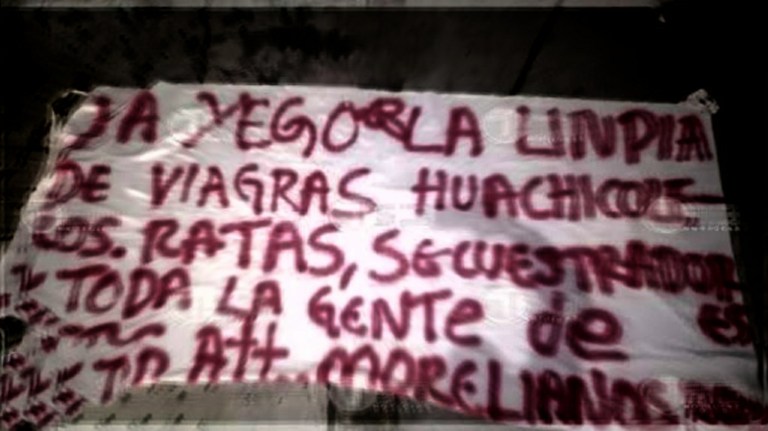 JA YEGO LA LINPIA
DE VIAGRAS HUACHICOLE
LOS. RATAS, SECUESTRADOR
TODA LA GENTE de ES
TD Att. MORELIANOS